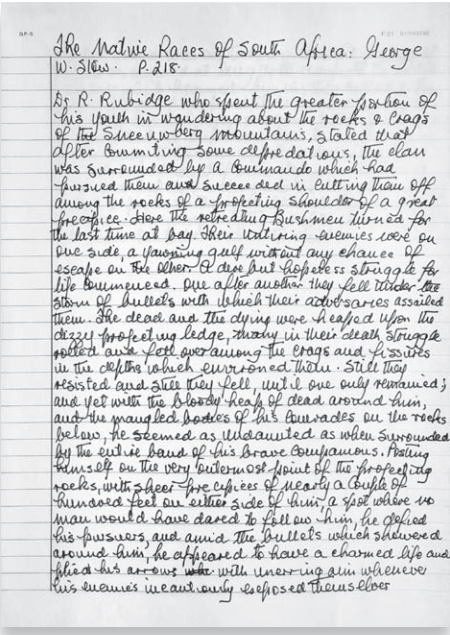 The Native Races of South Africa: George
W. Stow. P.218.
Dr R. Rubidge who spent the greater portion of
his youth in wandering about the rocks & crags
of the Sneeuwberg mountains, stated that
after commiting some depredations, the clan
was surrounded by a commando which had
pursued them and succeeded in cutting them off
among the rocks of a projecting shoulder of a great
precipice. Here the retreating Bushmen turned for
the last time at bay. Their untiring enemies were on
one side, a yawning gulf without any chance of
escape on the other. A dire but hopeless struggle for
life commenced. One after another they fell under the
storm of bullets with which their adversaries assailed
them. The dead and the dying were heaped upon the
dizzy projecting ledge, many in their death struggle
rolled and fell over among the crags and fissures
in the depths which environed them. Still they
resisted and still they fell, until one only remained;
and yet with the bloody heap of dead around him,
and the mangled bodies of his comrades on the rocks
below, he seemed as undaunted as when surrounded
by the entire band of his brave companions. Posting
himself on the very outermost point of the projecting
rocks, with sheer precipices of nearly a couple of
hundred feet on either side of him, a spot where no
man would have dared to follow him, he defied
his pursuers, and amid the bullets which showered
around him, he appeared to have a charmed life and
plied his arrows with unerring aim whenever
his enemies incautiously exposed themselves